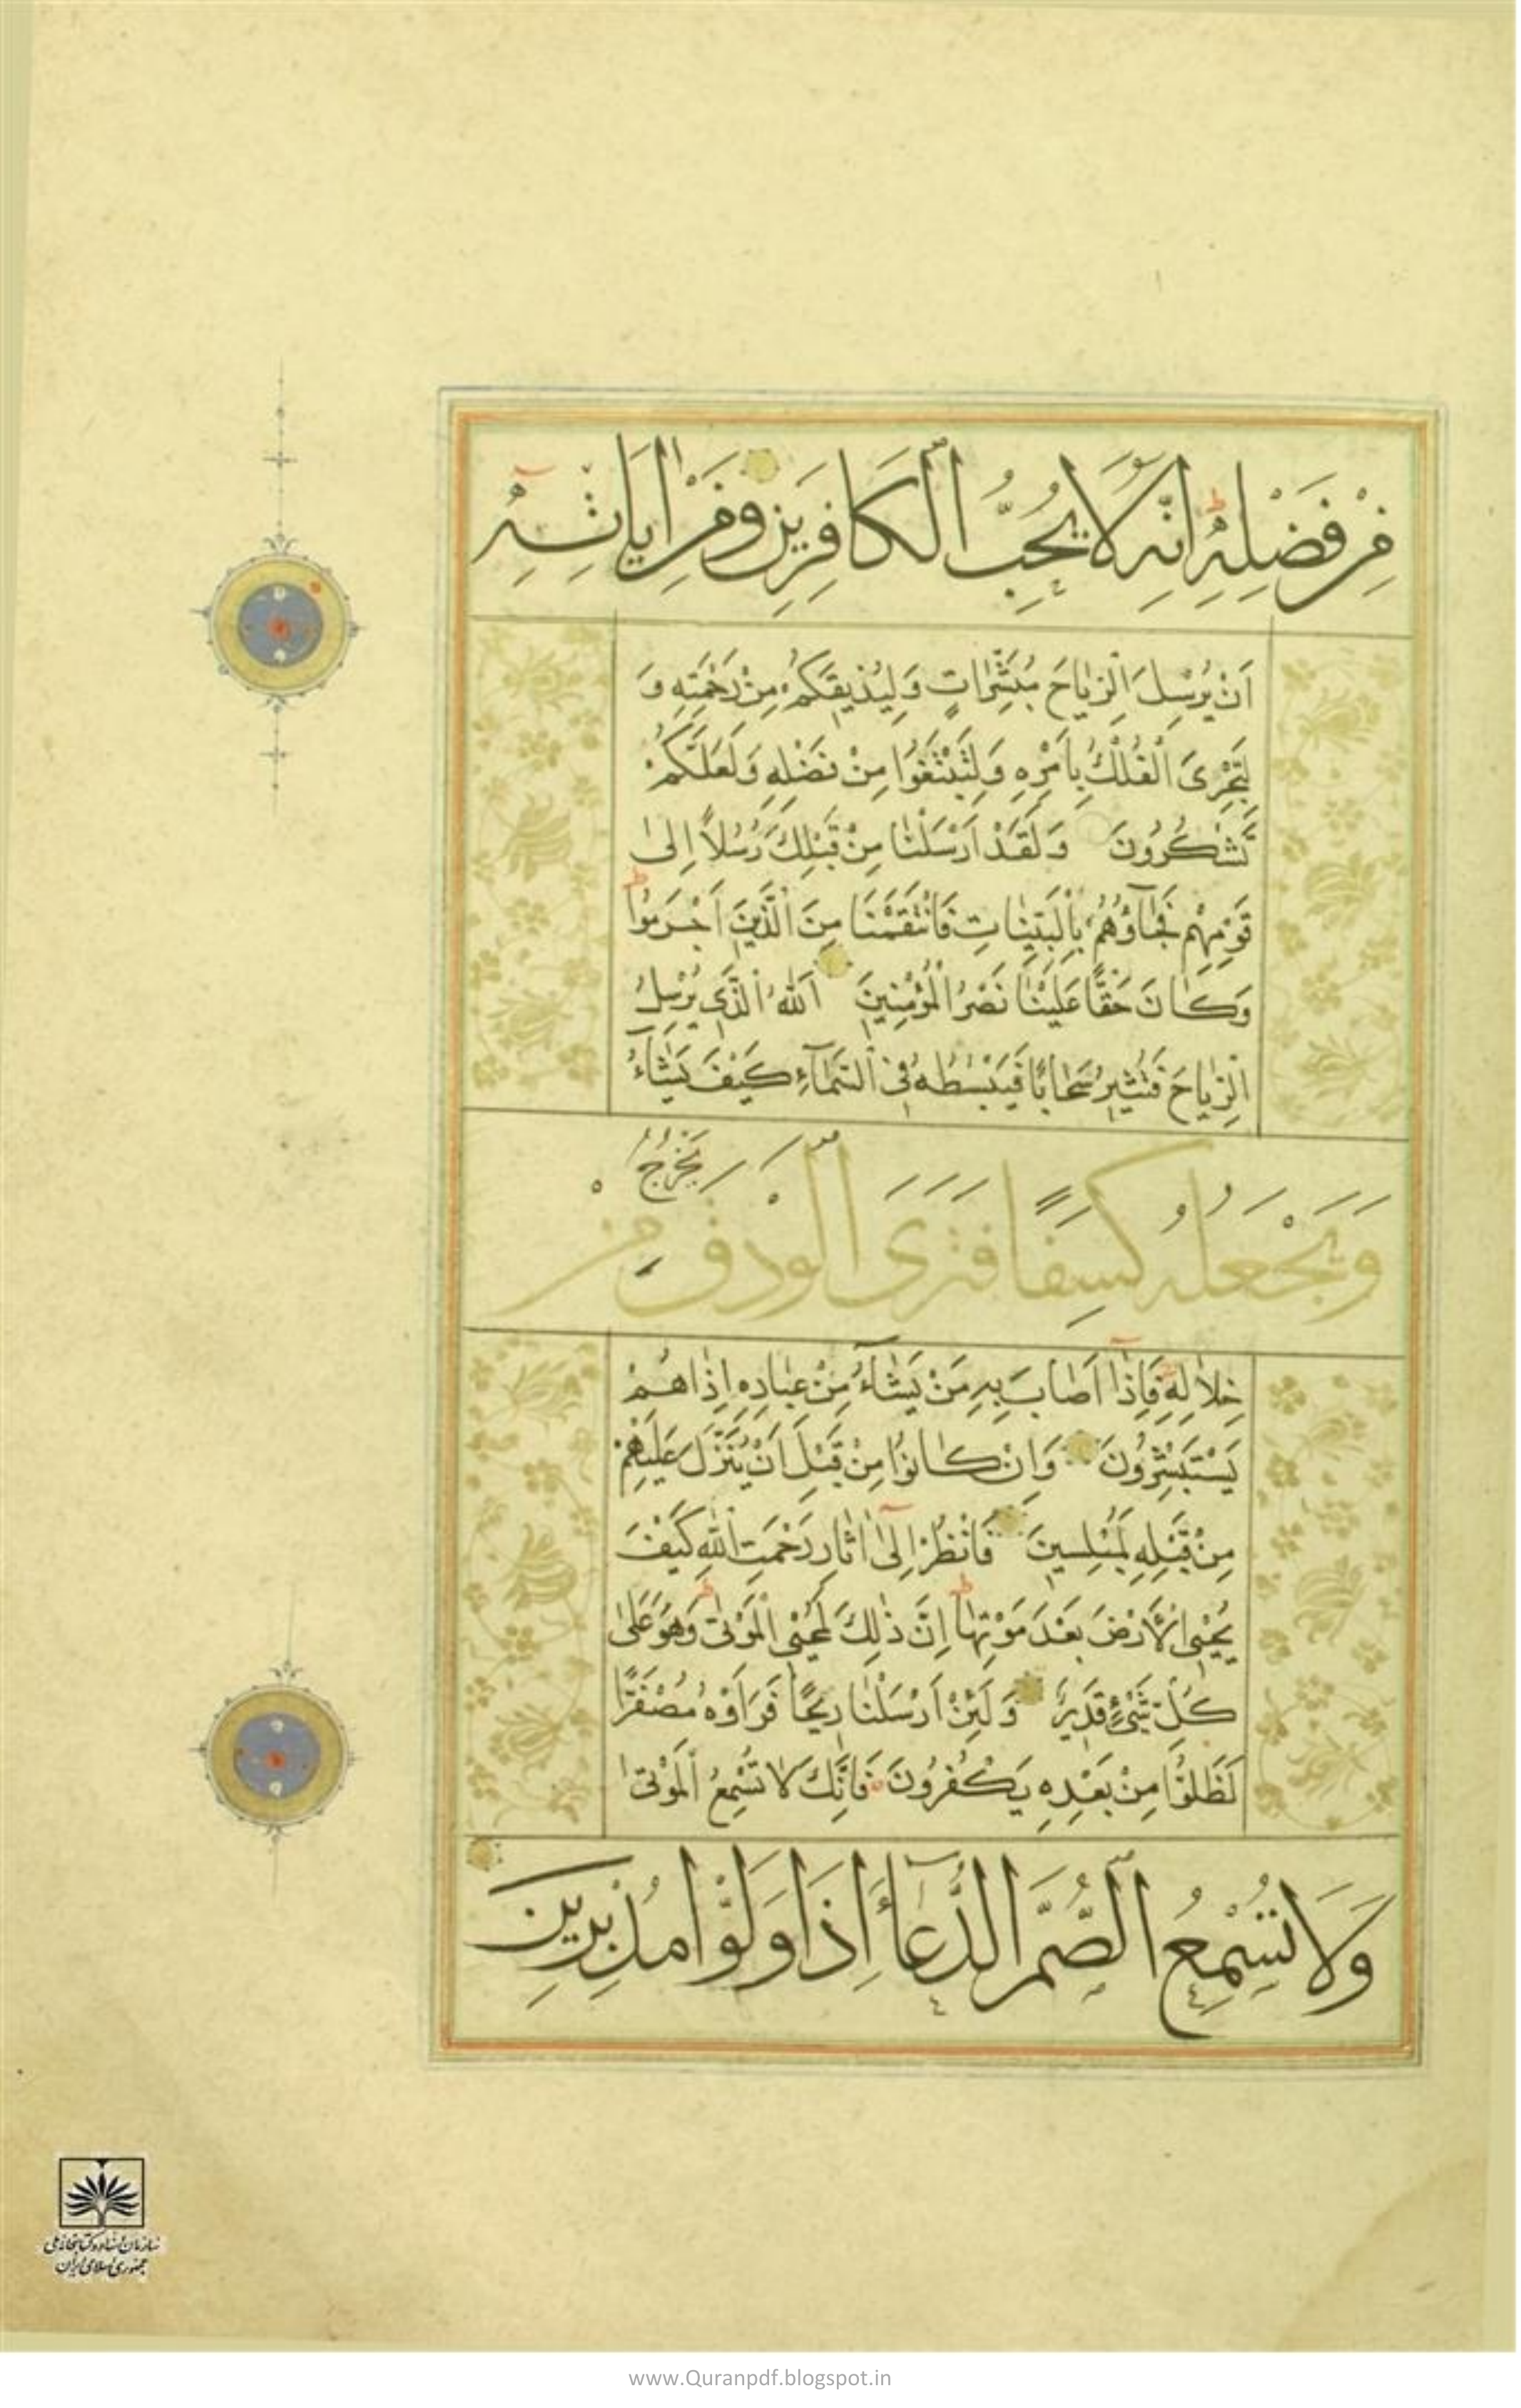 مِنْ فَضْلِهِ اِنَّهُ لَا يُحِبُّ الْكَافِرِينَ وَمِنْ اٰيَاتِهِ
اَنْ يُرْسِلَ الرِّيَاحَ مُبَشِّرَاتٍ وَلِيُذِيقَكُمْ مِنْ رَحْمَتِهِ وَ
لِتَجْرِيَ الْفُلْكُ بِاَمْرِهِ وَلِتَبْتَغُوا مِنْ فَضْلِهِ وَلَعَلَّكُمْ
تَشْكُرُونَ وَلَقَدْ اَرْسَلْنَا مِنْ قَبْلِكَ رُسُلًا اِلٰى
قَوْمِهِمْ فَجَآؤُهُمْ بِالْبَيِّنَاتِ فَانْتَقَمْنَا مِنَ الَّذِينَ اَجْرَمُوا
وَكَانَ حَقًّا عَلَيْنَا نَصْرُ الْمُؤْمِنِينَ اَللّٰهُ الَّذِي يُرْسِلُ
الرِّيَاحَ فَتُثِيرُ سَحَابًا فَيَبْسُطُهُ فِي السَّمَآءِ كَيْفَ يَشَآءُ
وَيَجْعَلُهُ كِسَفًا فَتَرَى الْوَدْقَ يَخْرُجُ مِنْ
خِلَالِهِ فَاِذَا اَصَابَ بِهِ مَنْ يَشَآءُ مِنْ عِبَادِهِ اِذَا هُمْ
يَسْتَبْشِرُونَ وَاِنْ كَانُوا مِنْ قَبْلِ اَنْ يُنَزَّلَ عَلَيْهِمْ
مِنْ قَبْلِهِ لَمُبْلِسِينَ فَانْظُرْ اِلٰٓى اٰثَارِ رَحْمَتِ اللّٰهِ كَيْفَ
يُحْيِي الْاَرْضَ بَعْدَ مَوْتِهَا اِنَّ ذٰلِكَ لَمُحْيِي الْمَوْتٰى وَهُوَ عَلٰى
كُلِّ شَيْءٍ قَدِيرٌ وَلَئِنْ اَرْسَلْنَا رِيحًا فَرَاَوْهُ مُصْفَرًّا
لَظَلُّوا مِنْ بَعْدِهِ يَكْفُرُونَ فَاِنَّكَ لَا تُسْمِعُ الْمَوْتٰى
وَلَا تُسْمِعُ الصُّمَّ الدُّعَآءَ اِذَا وَلَّوْا مُدْبِرِينَ
سازمان اسناد و کتابخانه ملی
جمهوری اسلامی ایران
www.Quranpdf.blogspot.in